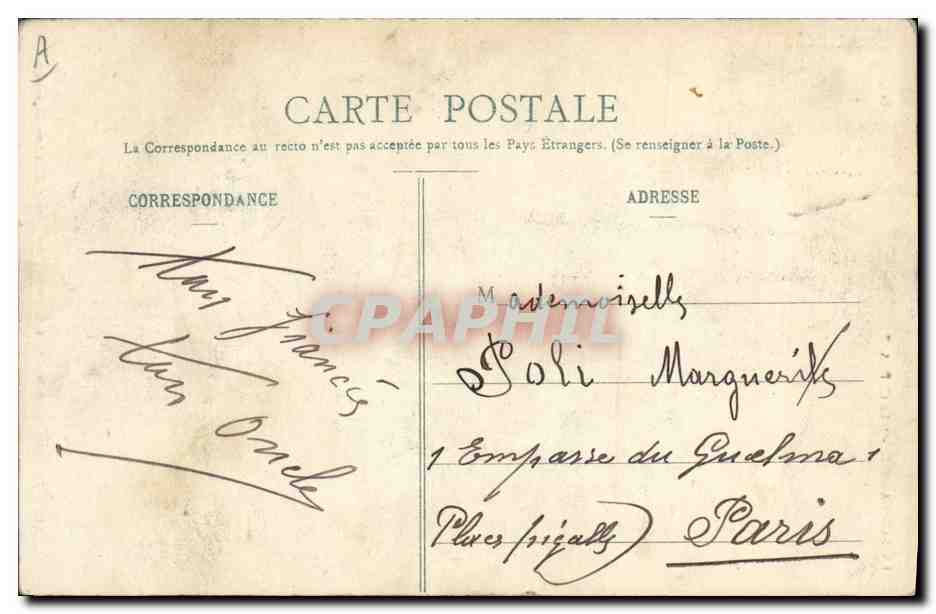 A
CARTE POSTALE
La Correspondance au recto n'est pas acceptée par tous les Pays Étrangers. (Se renseigner à la Poste.)
CORRESPONDANCE
ton fiancée
ton Oncle
ADRESSE
Mademoiselle
Poli Marguerite
1 Empasse du Guelma 1
Place pigalle) Paris
CPAPHIL